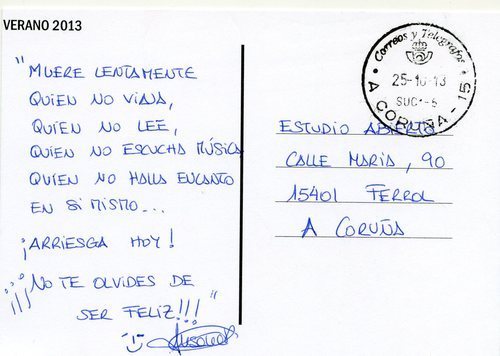 VERANO 2013
"MUERE LENTAMENTE
QUIEN NO VIAJA,
QUIEN NO LEE,
QUIEN NO ESCUCHA MÚSICA
QUIEN NO HALLA ENCANTO
EN SI MISMO...
¡ARRIESGA HOY!
¡¡¡NO TE OLVIDES DE
SER FELIZ!!!"
Correos y Telégrafos
25-10-13
SUC-5
A CORUÑA - 15
ESTUDIO ABIERTO
CALLE MARIA, 90
15401 FERROL
A CORUÑA